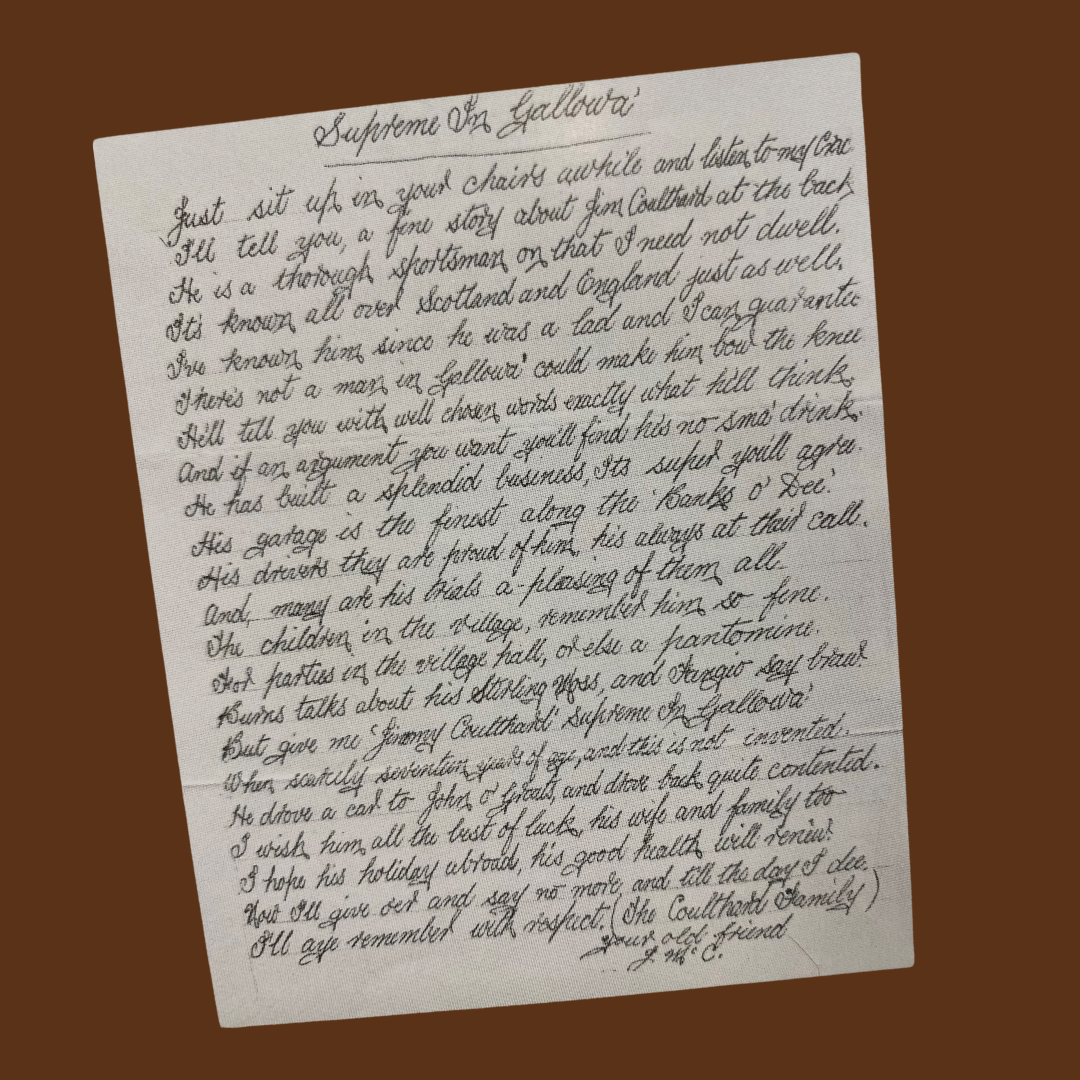 Supreme In Gallowa'
Just sit up in your chairs awhile and listen to my Crac
I'll tell you, a fine story about Jim Coulthard at the back
He is a thorough sportsman on that I need not dwell.
It's known all over Scotland and England just as well.
I've known him since he was a lad and I can guarantee
There's not a man in Gallowa' could make him bow the knee
He'll tell you with well chosen words exactly what he'll think.
And if an argument you want you'll find his no sma' drink.
He has built a splendid business, Its super you'll agree.
His garage is the finest along the 'Banks o' Dee'.
His drivers they are proud of him, his always at their call.
And, many are his trials a-pleasing of them all.
The children in the village, remember him so fine.
For parties in the village hall, or else a pantomine.
Burns talks about his Stirling Moss, and Fangio say braw
But give me 'Jimmy Coulthard' Supreme In Gallowa'
When scarcely seventeen years of age, and this is not invented.
He drove a car to John o' Groats, and drove back quite contented.
I wish him all the best of luck, his wife and family too
I hope his holiday abroad, his good health will renew.
Now I'll give oer and say no more, and till the day I dee.
I'll aye remember with respect. (The Coulthard Family)
your old friend
J. McC.